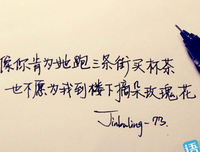 原你肯为她跑三条街买杯茶
也不愿为我到楼下摘朵玫瑰花
Jinbaling-73.
语